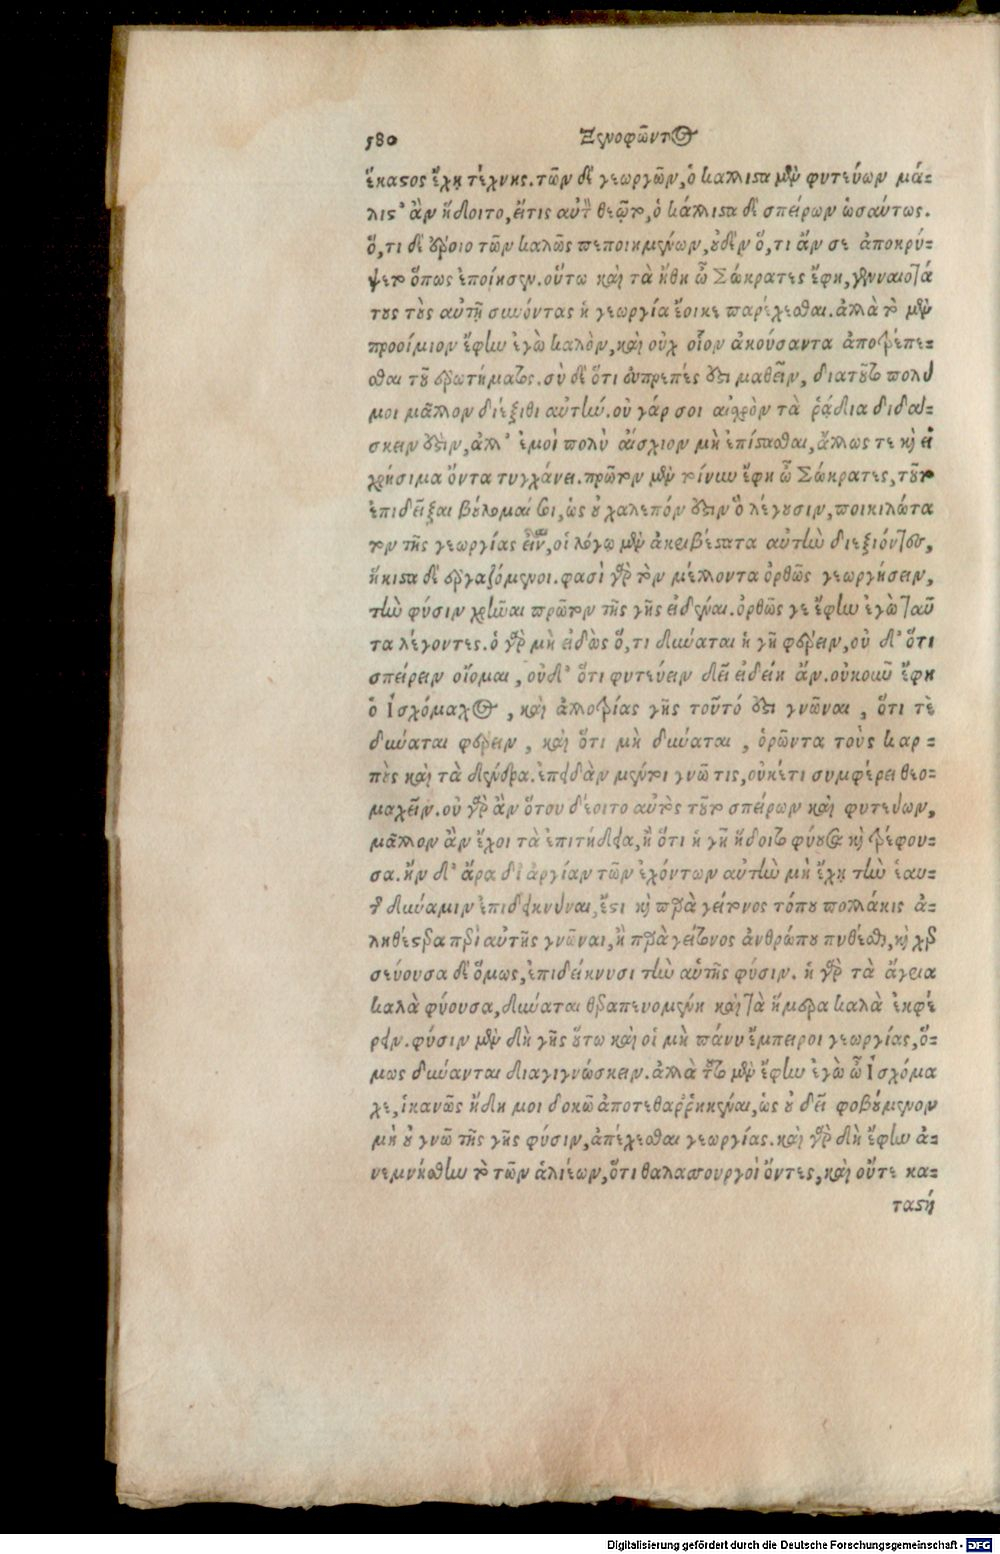 580 Ξενοφῶντος
ἕκαστος ἔχῃ τέχνης. τῶν δὲ γεωργῶν, ὁ κάλλιστα μὲν φυτεύων μά-
λιστ' ἂν ἥδοιτο, εἴ τις αὐτὸν θεῷτο, ὁ κάλλιστα δὲ σπείρων ὡσαύτως.
ὅ, τι δὲ ἔροιο τῶν καλῶς πεποιημένων, οὐδὲν ὅ, τι ἄν σε ἀποκρύ-
ψετο ὅπως ἐποίησεν. οὕτω καὶ τὰ ἤθη ὦ Σώκρατες ἔφη, γενναιοτά
τους τοὺς αὐτῇ συνόντας ἡ γεωργία ἔοικε παρέχεσθαι. ἀλλὰ τὸ μὲν
προοίμιον ἔφην ἐγὼ καλὸν, καὶ οὐχ οἷον ἀκούσαντα ἀποτρέπε-
σθαι τοῦ ἐρωτήματος. σὺ δὲ ὅτι εὐπρεπές ἐστι μαθεῖν, διατοῦτο πολὺ
μοι μᾶλλον διέξιθι αὐτήν. οὐ γάρ σοι αἰσχρὸν τὰ ῥᾴδια διδά-
σκειν ἐστὶν, ἀλλ' ἐμοὶ πολὺ αἴσχιον μὴ ἐπίστασθαι, ἄλλως τε καὶ εἰ
χρήσιμα ὄντα τυγχάνει. πρῶτον μὲν τοίνυν ἔφη ὦ Σώκρατες, τοῦτο
ἐπιδεῖξαι βούλομαί σοι, ὡς οὐ χαλεπόν ἐστιν ὃ λέγουσιν, ποικιλώτα
τον τῆς γεωργίας εἶναι, οἱ λόγῳ μὲν ἀκριβέστατα αὐτὴν διεξιόντες,
ἥκιστα δὲ ἐργαζόμενοι. φασὶ γὰρ τὸν μέλλοντα ὀρθῶς γεωργήσειν,
τὴν φύσιν χρῆναι πρῶτον τῆς γῆς εἰδέναι. ὀρθῶς γε ἔφην ἐγὼ ταῦ
τα λέγοντες. ὁ γὰρ μὴ εἰδὼς ὅ, τι δύναται ἡ γῆ φέρειν, οὐ δ' ὅτι
σπείρειν οἴομαι, οὐδ' ὅτι φυτεύειν δεῖ εἰδείη ἄν. οὐκοῦν ἔφη
ὁ Ἰσχόμαχος, καὶ ἀλλοτρίας γῆς τοῦτό ἐστι γνῶναι, ὅτι τὲ
δύναται φέρειν, καὶ ὅτι μὴ δύναται, ὁρῶντα τοὺς καρ-
ποὺς καὶ τὰ δένδρα. ἐπειδὰν μέντοι γνῶ τις, οὐκέτι συμφέρει θεο-
μαχεῖν. οὐ γὰρ ἂν ὅτου δέοιτο αὐτὸς τοῦτο σπείρων καὶ φυτεύων,
μᾶλλον ἂν ἔχοι τὰ ἐπιτήδεια, ἢ ὅτι ἡ γῆ ἥδοιτο φύουσα καὶ τρέφου-
σα. ἢν δ' ἄρα δι ἀργίαν τῶν ἐχόντων αὐτὴν μὴ ἔχῃ τὴν ἑαυ-
τῆς δύναμιν ἐπιδεικνύναι, ἔστι καὶ παρὰ γείτονος τόπου πολλάκις ἀ-
ληθέστερα περὶ αὐτῆς γνῶναι, ἢ παρὰ γείτονος ἀνθρώπου πυθέσθαι, καὶ χερ
σεύουσα δὲ ὅμως, ἐπιδείκνυσι τὴν αὑτῆς φύσιν. ἡ γὰρ τὰ ἄγρια
καλὰ φύουσα, δύναται θεραπευομένη καὶ τὰ ἥμερα καλὰ ἐκφέ
ρειν. φύσιν μὲν δὴ γῆς οὕτω καὶ οἱ μὴ πάνυ ἔμπειροι γεωργίας, ὅ-
μως δύνανται διαγιγνώσκειν. ἀλλὰ τοῦτο μὲν ἔφην ἐγὼ ὦ Ἰσχόμα
χε, ἱκανῶς ἤδη μοι δοκῶ ἀποτεθαῤῥηκέναι, ὡς οὐ δεῖ φοβούμενον
μὴ οὐ γνῶ τῆς γῆς φύσιν, ἀπέχεσθαι γεωργίας. καὶ γὰρ δὴ ἔφην ἀ-
νεμνήσθην τὸ τῶν ἁλιέων, ὅτι θαλαττουργοὶ ὄντες, καὶ οὔτε κα-
ταστή
Digitalisierung gefördert durch die Deutsche Forschungsgemeinschaft - DFG